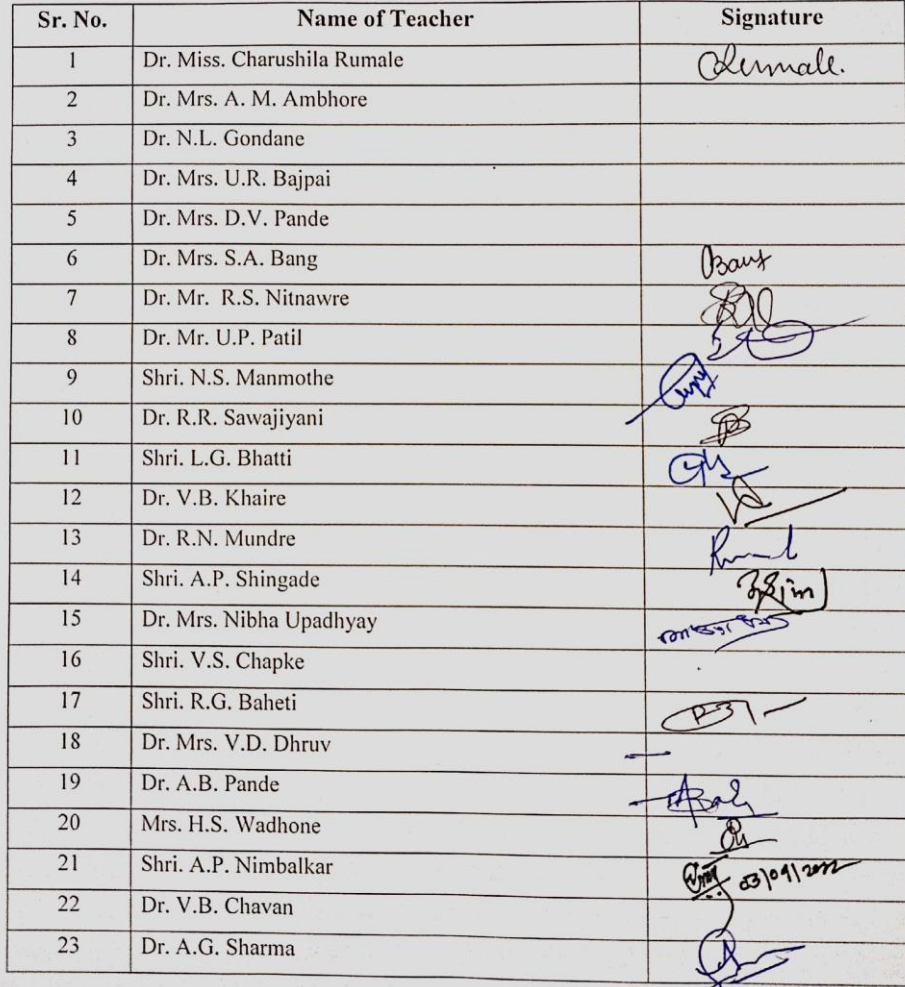 Sr. No. Name of Teacher Signature
1 Dr. Miss. Charushila Rumale
2 Dr. Mrs. A. M. Ambhore
3 Dr. N.L. Gondane
4 Dr. Mrs. U.R. Bajpai
5 Dr. Mrs. D.V. Pande
6 Dr. Mrs. S.A. Bang
7 Dr. Mr. R.S. Nitnawre
8 Dr. Mr. U.P. Patil
9 Shri. N.S. Manmothe
10 Dr. R.R. Sawajiyani
11 Shri. L.G. Bhatti
12 Dr. V.B. Khaire
13 Dr. R.N. Mundre
14 Shri. A.P. Shingade
15 Dr. Mrs. Nibha Upadhyay
16 Shri. V.S. Chapke
17 Shri. R.G. Baheti
18 Dr. Mrs. V.D. Dhruv
19 Dr. A.B. Pande
20 Mrs. H.S. Wadhone
21 Shri. A.P. Nimbalkar
22 Dr. V.B. Chavan
23 Dr. A.G. Sharma